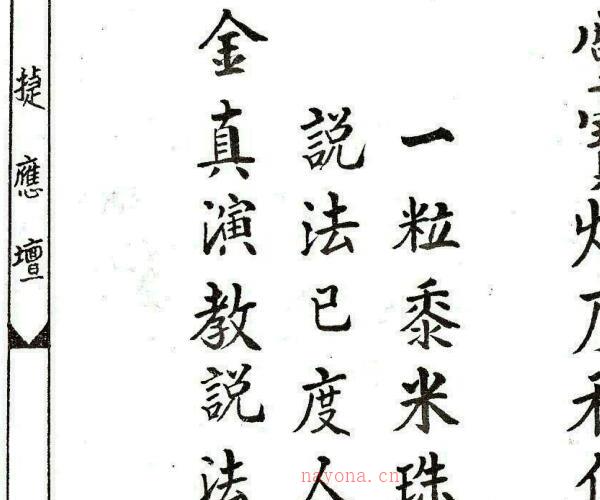 一粒黍米珠
説法已度人
金真演教説法
捷應壇
nayona.cn